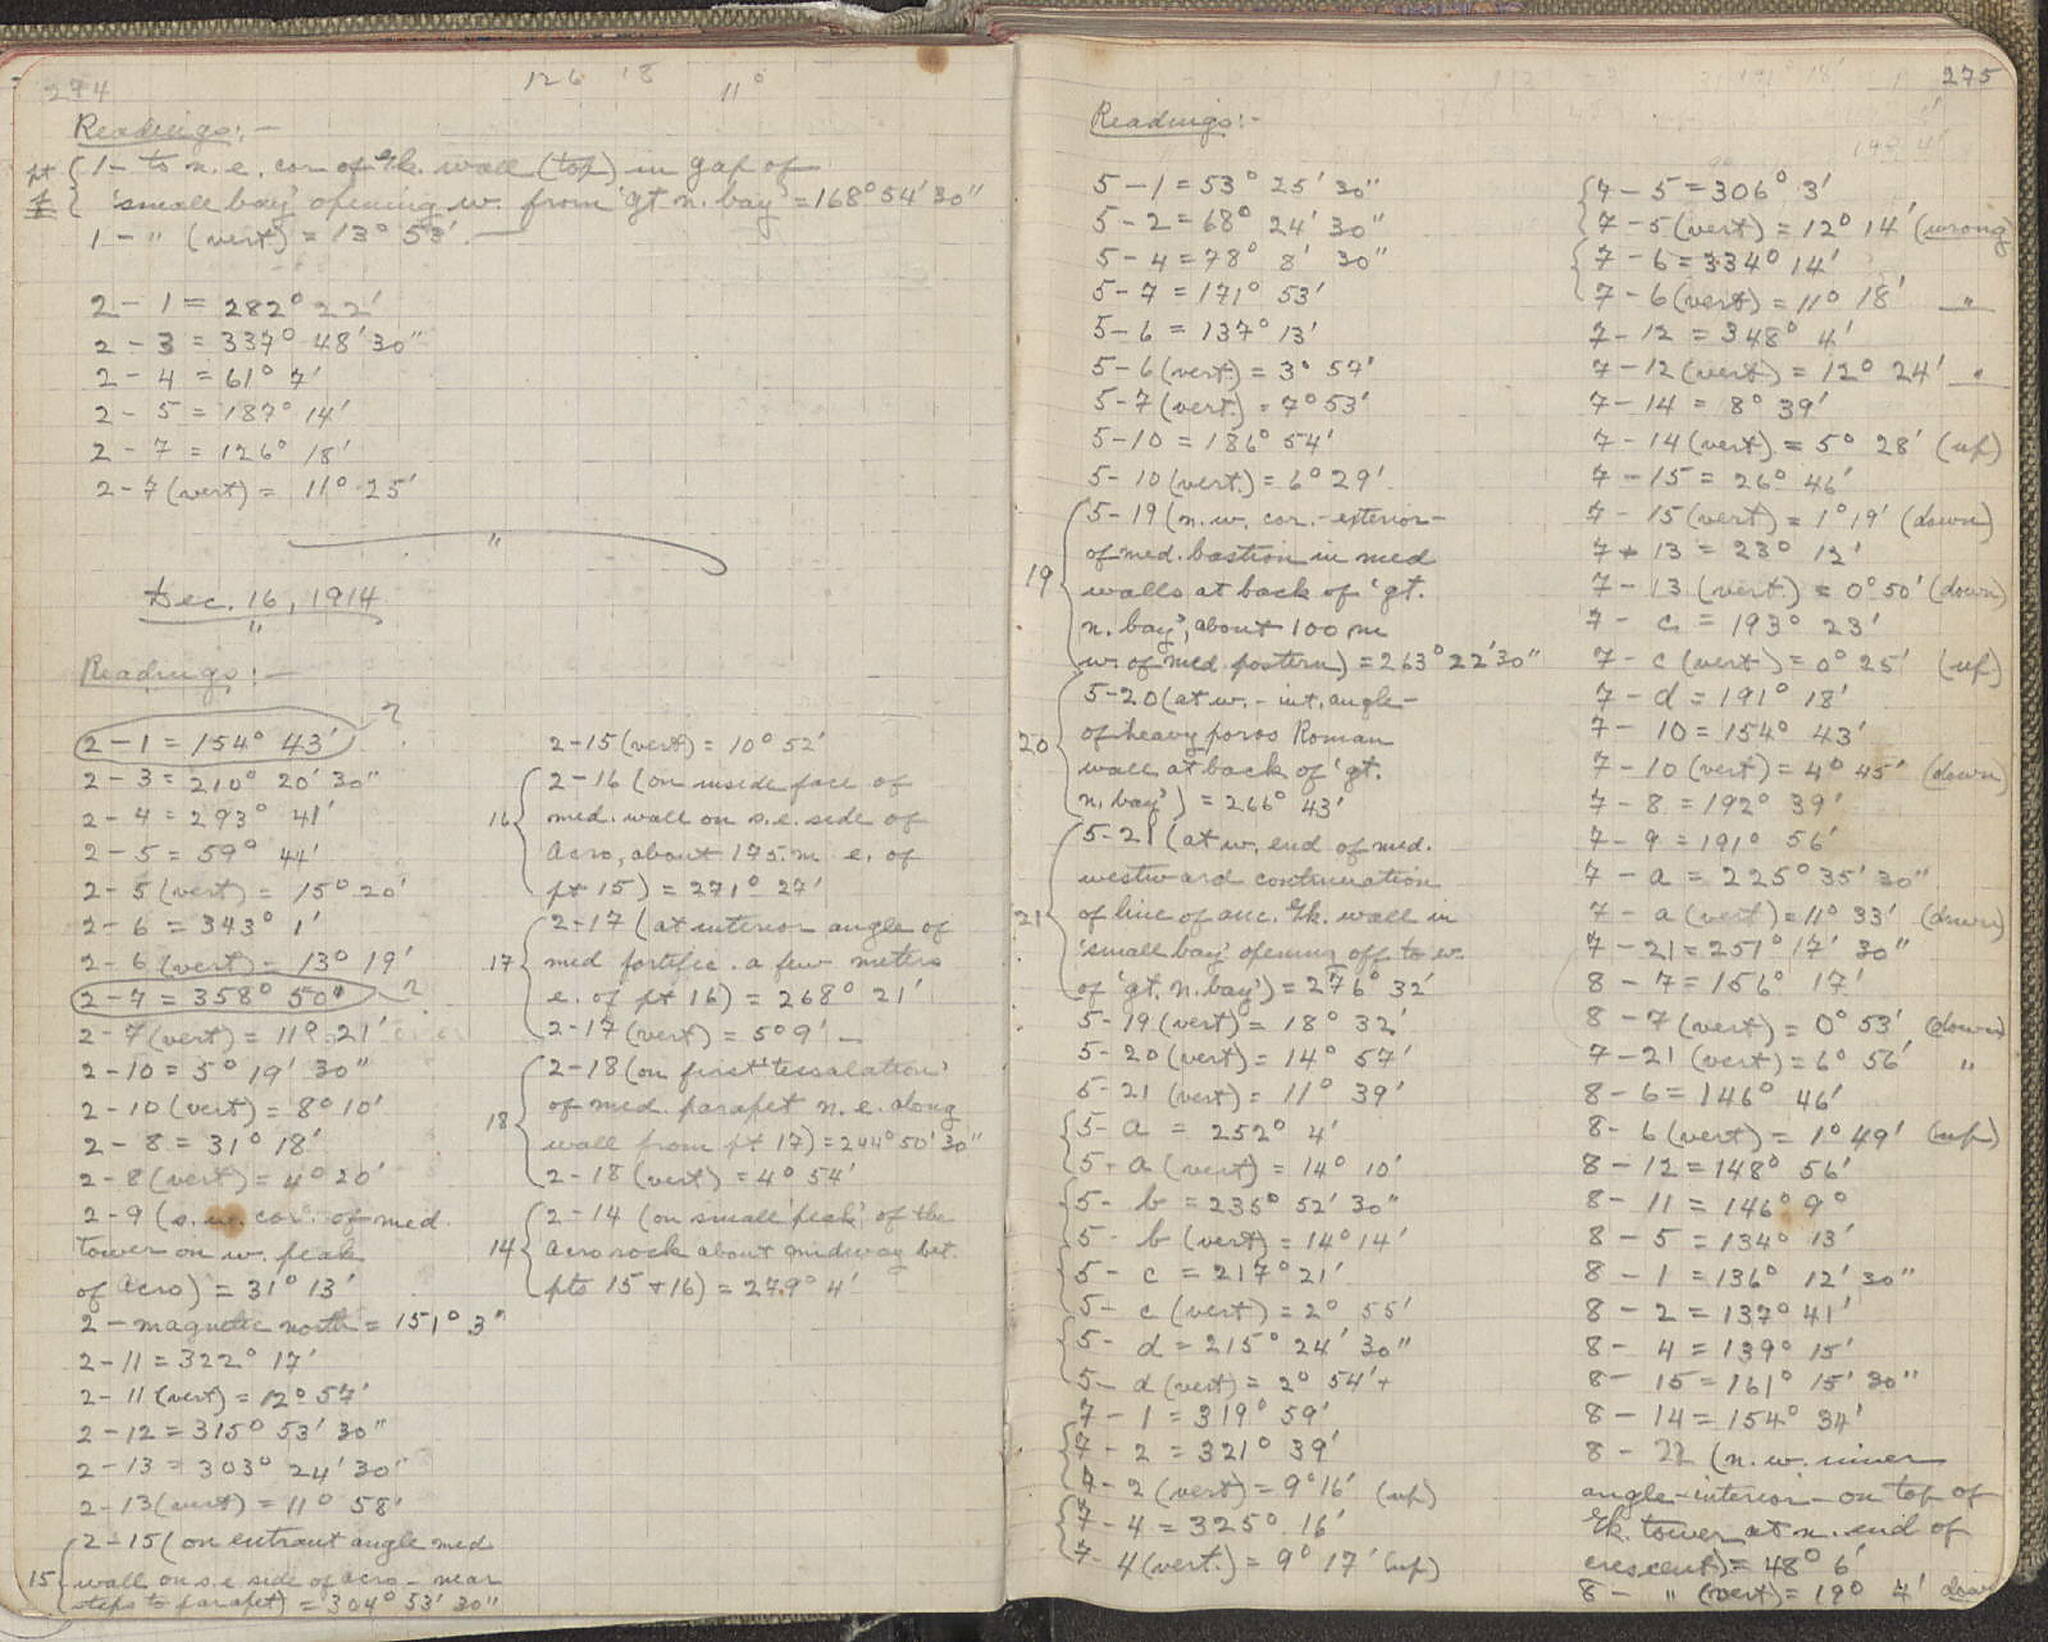 274
126 18
11°
Readings:-
pt 1- to n.e. cor of Gk. wall (top) in gap of
'small bay' opening w. from 'gt n. bay' = 168° 54' 30"
1 - " (vert) = 13° 53'.
2 - 1 = 282° 22'
2 - 3 = 337° 48' 30"
2 - 4 = 61° 7'
2 - 5 = 187° 14'
2 - 7 = 126° 18'
2 - 7 (vert) = 11° 25'
"
Dec. 16, 1914
"
Readings:-
2 - 1 = 154° 43' ?
2 - 3 = 210° 20' 30"
2 - 4 = 293° 41'
2 - 5 = 59° 44'
2 - 5 (vert) = 15° 20'
2 - 6 = 343° 1'
2 - 6 (vert) - 13° 19'
2 - 7 = 358° 50' ?
2 - 7 (vert) = 11° 21'
2 - 10 = 5° 19' 30"
2 - 10 (vert) = 8° 10'
2 - 8 = 31° 18'
2 - 8 (vert) = 4° 20'
2 - 9 (s. cor. of med.
tower on w. peak
of acro) = 31° 13'
2 - magnetic north = 151° 3'
2 - 11 = 322° 17'
2 - 11 (vert) = 12° 57'
2 - 12 = 315° 53' 30"
2 - 13 = 303° 24' 30"
2 - 13 (vert) = 11° 58'
2 - 15 (on entrant angle med
15 wall on s.e side of acro - near
steps to parapet) = 304° 53' 30"
2 - 15 (vert) = 10° 52'
2 - 16 (on inside face of
16 med. wall on s.e. side of
acro, about 175 m e. of
pt 15) = 271° 27'
2 - 17 (at interior angle of
17 med fortific. a few meters
e. of pt 16) = 268° 21'
2 - 17 (vert) = 5° 9' -
2 - 18 (on first 'tessalation'
of med. parapet n.e. along
18 wall from pt 17) = 244° 50' 30"
2 - 18 (vert) = 4° 54'
2 - 14 (on small 'peak' of the
14 acro rock about midway bet.
pts 15 + 16) = 279° 4'
275
Readings:-
5 - 1 = 53° 25' 30"
5 - 2 = 68° 24' 30"
5 - 4 = 78° 8' 30"
5 - 7 = 171° 53'
5 - 6 = 137° 13'
5 - 6 (vert.) = 3° 57'
5 - 7 (vert.) = 7° 53'
5 - 10 = 186° 54'
5 - 10 (vert.) = 6° 29'
5 - 19 (n.w. cor. - exterior -
of med. bastion in med
19 walls at back of 'gt.
n. bay', about 100 m
w. of med postern) = 263° 22' 30"
5 - 20 (at w. - int. angle -
20 of heavy poros Roman
wall at back of 'gt.
n. bay') = 266° 43'
5 - 21 (at w. end of med.
westward continuation
21 of line of anc. Gk. wall in
'small bay' opening off to w.
of 'gt. n. bay') = 276° 32'
5 - 19 (vert) = 18° 32'
5 - 20 (vert) = 14° 57'
5 - 21 (vert) = 11° 39'
5 - a = 252° 4'
5 - a (vert) = 14° 10'
5 - b = 235° 52' 30"
5 - b (vert) = 14° 14'
5 - c = 217° 21'
5 - c (vert) = 2° 55'
5 - d = 215° 24' 30"
5 - d (vert) = 2° 54'+
7 - 1 = 319° 59'
7 - 2 = 321° 39'
7 - 2 (vert) = 9° 16' (up)
7 - 4 = 325° 16'
7 - 4 (vert.) = 9° 17' (up)
7 - 5 = 306° 3'
7 - 5 (vert) = 12° 14' (wrong)
7 - 6 = 334° 14'
7 - 6 (vert) = 11° 18' "
7 - 12 = 348° 4'
7 - 12 (vert) = 12° 24' "
7 - 14 = 8° 39'
7 - 14 (vert) = 5° 28' (up)
7 - 15 = 26° 46'
7 - 15 (vert) = 1° 19' (down)
7 - 13 = 23° 12'
7 - 13 (vert.) = 0° 50' (down)
7 - c = 193° 23'
7 - c (vert) = 0° 25' (up)
7 - d = 191° 18'
7 - 10 = 154° 43'
7 - 10 (vert) = 4° 45' (down)
7 - 8 = 192° 39'
7 - 9 = 191° 56'
7 - a = 225° 35' 30"
7 - a (vert) = 11° 33' (down)
7 - 21 = 251° 17' 30"
8 - 7 = 156° 17'
8 - 7 (vert) = 0° 53' (down)
7 - 21 (vert) = 6° 56' "
8 - 6 = 146° 46'
8 - 6 (vert) = 1° 49' (up)
8 - 12 = 148° 56'
8 - 11 = 146° 9°
8 - 5 = 134° 13'
8 - 1 = 136° 12' 30"
8 - 2 = 137° 41'
8 - 4 = 139° 15'
8 - 15 = 161° 15' 30"
8 - 14 = 154° 34'
8 - 22 (n.w. inner
angle - interior - on top of
Gk. tower at n. end of
crescent) = 48° 6'
8 - " (vert) = 19° 4' down